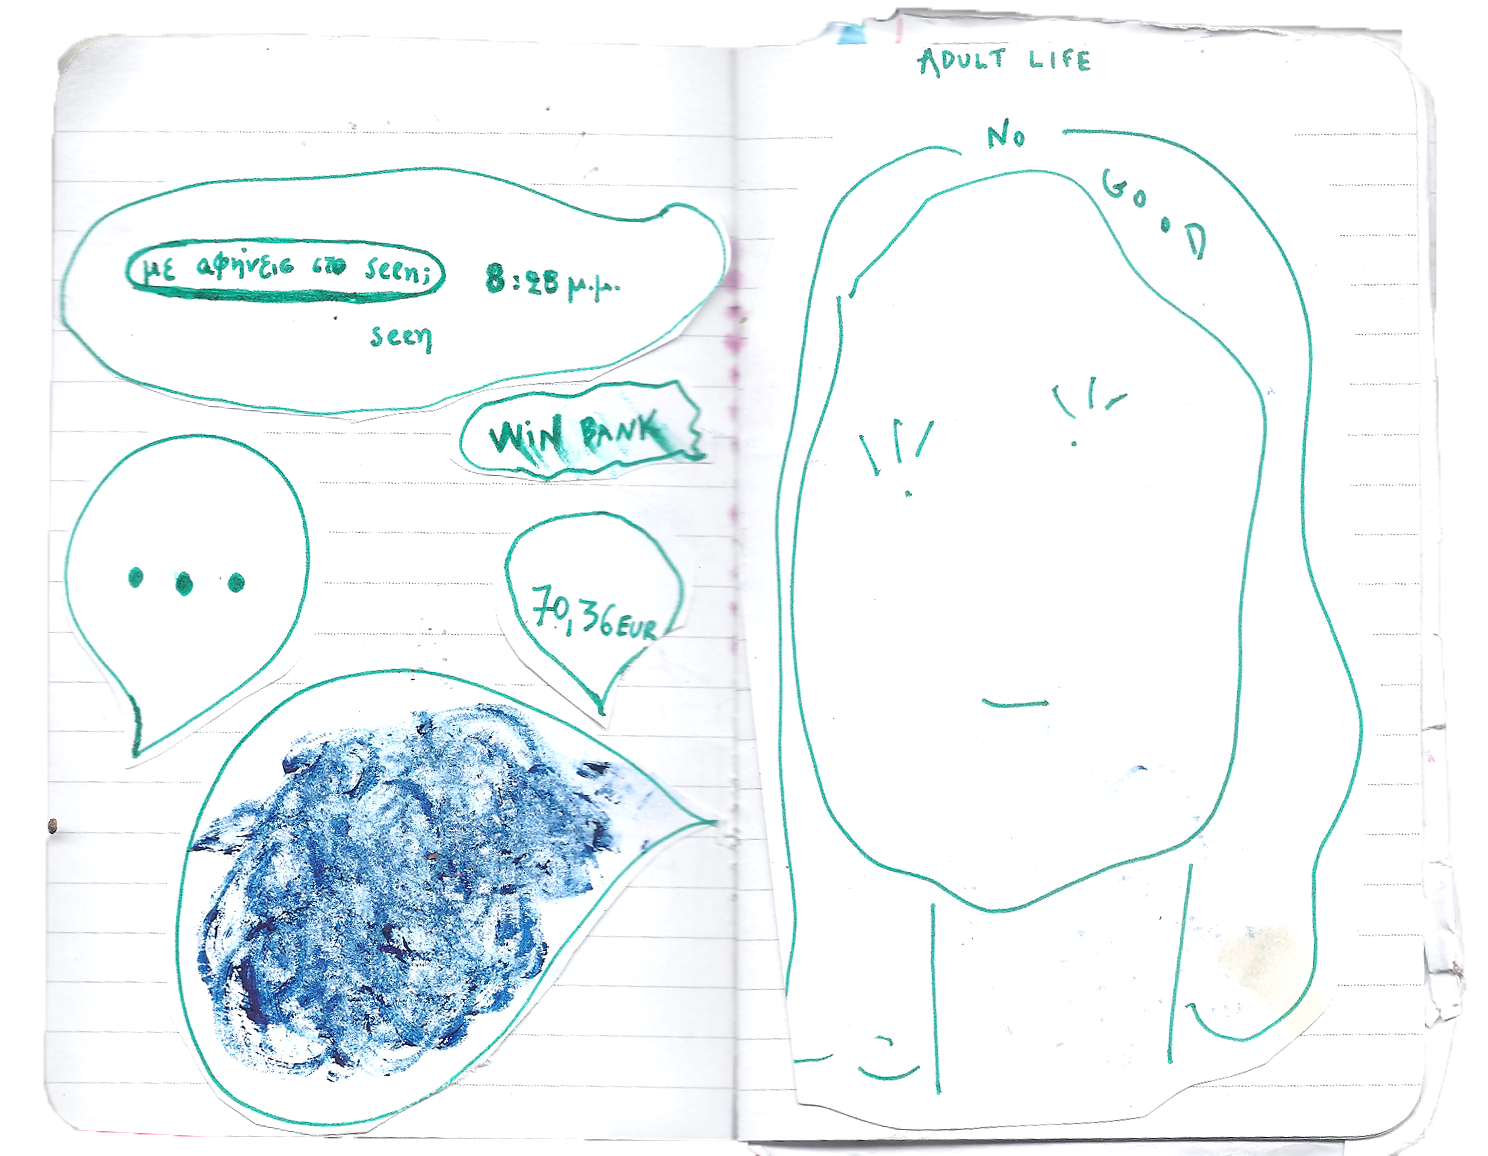 με αφήνεις στο seen;
8:28 μ.μ.
seen
WIN BANK
...
70,36 EUR
ADULT LIFE
No
GOOD